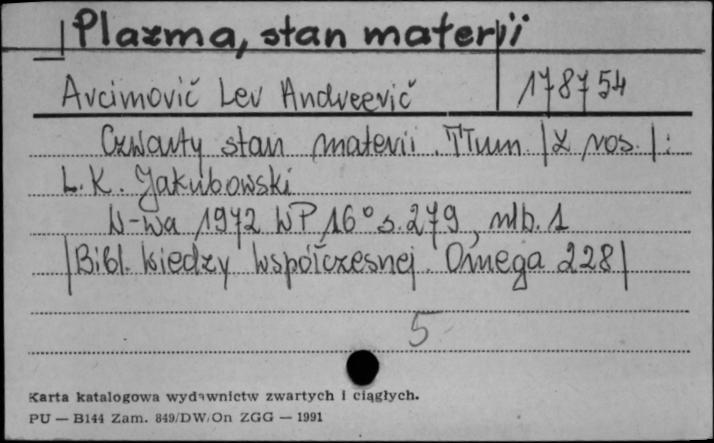 Plazma, stan materji
Arcimovič Lev Andreevič 178754
Czwarty stan materii. Tłum. /z ros./:
L.K. Jakubowski
W-wa 1972 WP 16° s. 279, nlb. 1
/Bibl. Wiedzy Współczesnej. Omega 228/
5
Karta katalogowa wydawnictw zwartych i ciągłych.
PU — B144 Zam. 849/DW/On ZGG — 1991